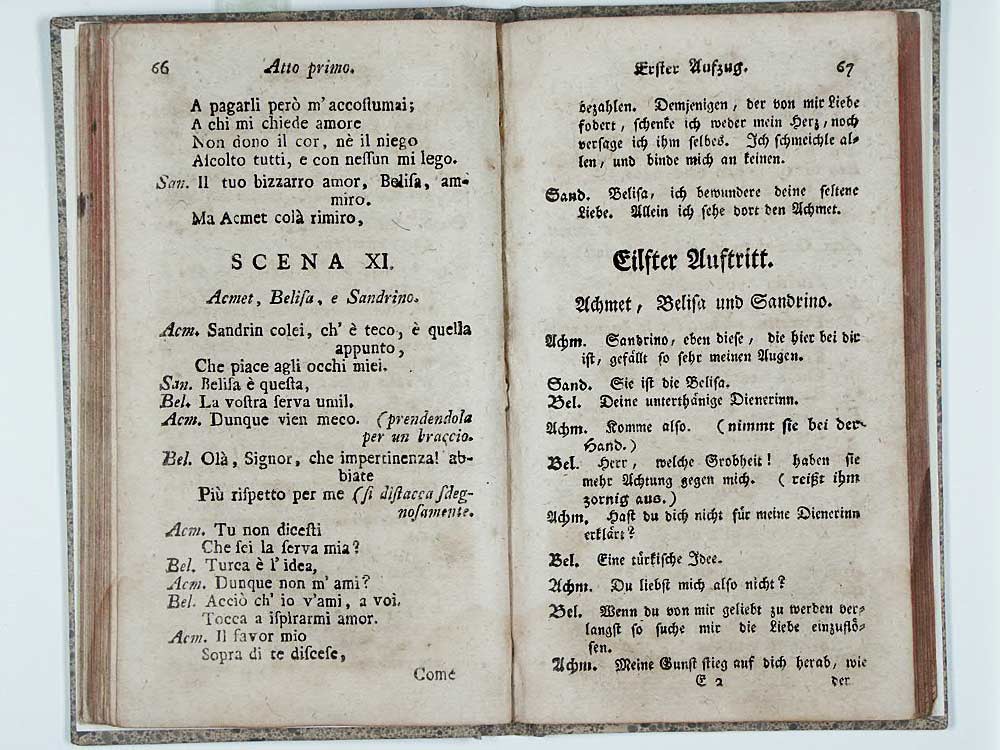 66 Atto primo.
A pagarli però m' accoſtumai;
A chi mi chiede amore
Non dono il cor, nè il niego
Aſcolto tutti, e con neſſun mi lego.
San. Il tuo bizzarro amor, Beliſa, am-
miro.
Ma Acmet colà rimiro,
SCENA XI.
Acmet, Beliſa, e Sandrino.
Acm. Sandrin colei, ch' è teco, è quella
appunto,
Che piace agli occhi miei.
San. Beliſa è queſta,
Bel. La voſtra ſerva umil.
Acm. Dunque vien meco. (prendendola
per un braccio.
Bel. Olà, Signor, che impertinenza! ab-
biate
Più riſpetto per me (ſi diſtacca ſdeg-
noſamente.
Acm. Tu non diceſti
Che ſei la ſerva mia?
Bel. Turca è l' idea,
Acm. Dunque non m' ami?
Bel. Acciò ch' io v'ami, a voi.
Tocca a iſpirarmi amor.
Acm. Il favor mio
Sopra di te diſceſe,
Come
Erſter Aufzug. 67
bezahlen. Demjenigen, der von mir Liebe
fodert, ſchenke ich weder mein Herz, noch
verſage ich ihm ſelbes. Ich ſchmeichle al-
len, und binde mich an keinen.
Sand. Beliſa, ich bewundere deine ſeltene
Liebe. Allein ich ſehe dort den Achmet.
Eilfter Auftritt.
Achmet, Beliſa und Sandrino.
Achm. Sandrino, eben dieſe, die hier bei dir
iſt, gefällt ſo ſehr meinen Augen.
Sand. Sie iſt die Beliſa.
Bel. Deine unterthänige Dienerinn.
Achm. Komme alſo. (nimmt ſie bei der-
Hand.)
Bel. Herr, welche Grobheit! haben ſie
mehr Achtung gegen mich. (reißt ihm
zornig aus.)
Achm. Haſt du dich nicht für meine Dienerinn
erklärt?
Bel. Eine türkiſche Idee.
Achm. Du liebſt mich alſo nicht?
Bel. Wenn du von mir geliebt zu werden ver-
langſt ſo ſuche mir die Liebe einzuflö-
ſen.
Achm. Meine Gunſt ſtieg auf dich herab, wie
E 2 der